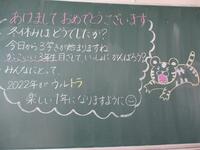 あけまして おめでとうございます
冬休みはどうでしたか？
今日から3学きが始まりますね
かっこいい3年生目ざして いっしょにがんばろう？
みんなにとって、
2022年がウルトラ
楽しい1年になりますように☺